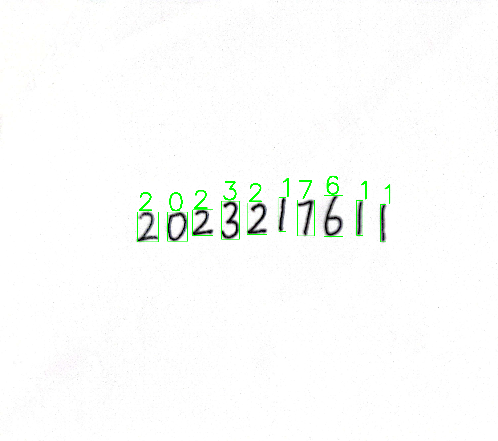 2023217611
2023217611